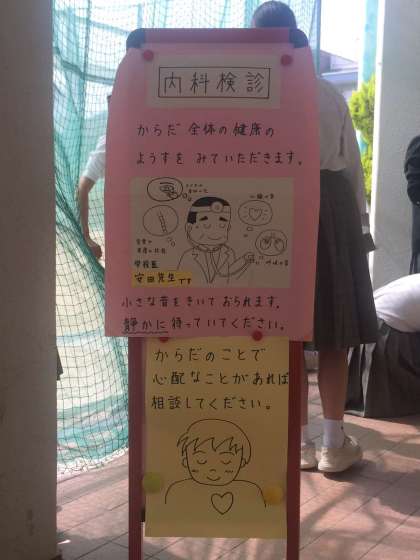 内科検診
からだ全体の健康の
ようすを みていただきます。
心臓の音
呼吸の音
学校医
安田先生です
小さな音をきいておられます。
静かに待っていてください。
からだのことで
心配なことがあれば
相談してください。